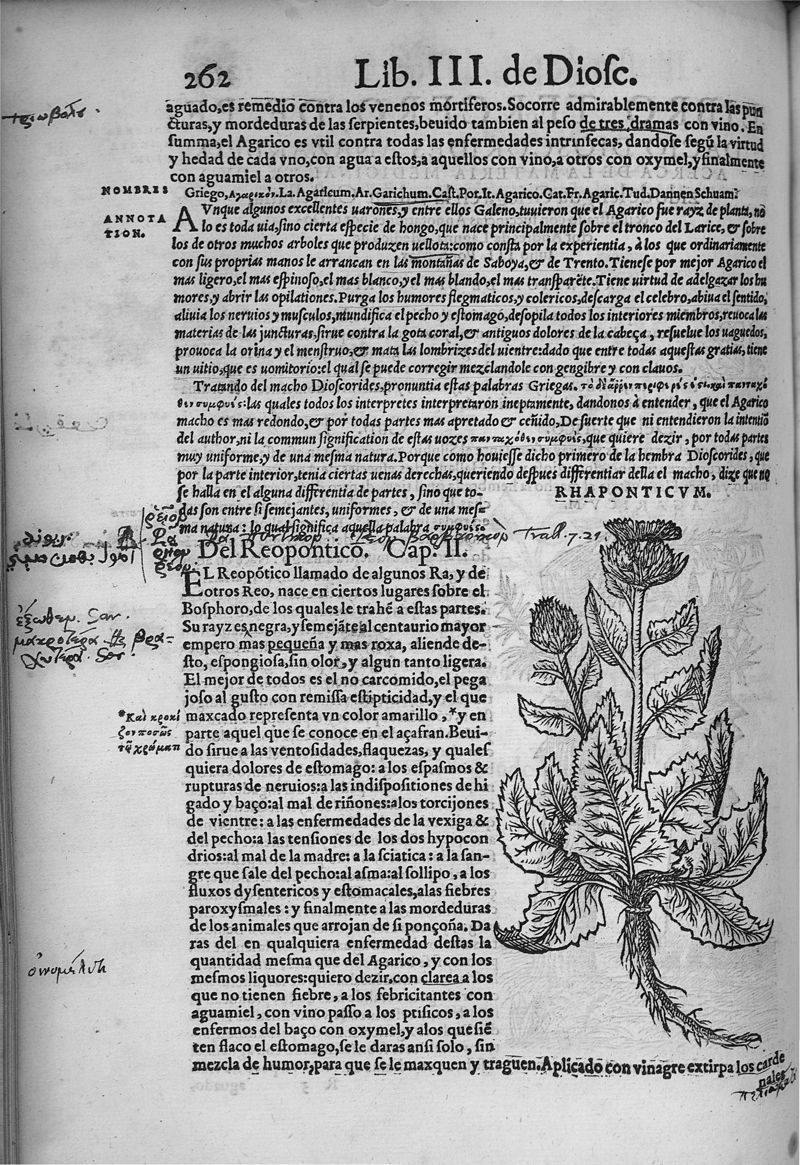 262 Lib. III. de Diosc.
aguado, es remedio contra los venenos mortiferos. Socorre admirablemente contra las pun
cturas, y mordeduras de las serpientes, beuido tambien al peso de tres dramas con vino. En
summa, el Agarico es vtil contra todas las enfermedades intrinsecas, dandose segũ la virtud
y hedad de cada vno, con agua a estos, a aquellos con vino, a otros con oxymel, y finalmente
con aguamiel a otros.
NOMBRES
Griego, Αγαρικόν. La. Agaricum. Ar. Garichum. Cast. Por. It. Agarico. Cat. Fr. Agaric. Tud. Dannen Schuam.
ANNOTA
TION.
AVnque algunos excellentes uarones, y entre ellos Galeno, tuuieron que el Agarico fue rayz de planta, no
lo es toda uia, sino cierta especie de hongo, que nace principalmente sobre el tronco del Larice, & sobre
los de otros muchos arboles que produzen uellota: como consta por la experientia, à los que ordinariamente
con sus proprias manos le arrancan en las montañas de Saboya, & de Trento. Tienese por mejor Agarico el
mas ligero, el mas espinoso, el mas blanco, y el mas blando, el mas transparẽte. Tiene uirtud de adelgazar los hu
mores, y abrir las opilationes. Purga los humores flegmaticos, y colericos, descarga el celebro, abiua el sentido,
aliuia los neruios y musculos, mundifica el pecho y estomagó, desopila todos los interiores miembros, reuoca las
materias de las juncturas, sirue contra la gota coral, & antiguos dolores de la cabeça, resuelue los uaguedos,
prouoca la orina y el menstruo, & mata las lombrizes del uientre: dado que entre todas aquestas gratias, tiene
un uitio, que es uomitorio: el qual se puede corregir mezclandole con gengibre y con clauos.
Tratando del macho Dioscorides, pronuntia estas palabras Griegas.
las quales todos los interpretes interpretaron ineptamente, dandonos à entender, que el Agarico
macho es mas redondo, & por todas partes mas apretado & ceñido, De suerte que ni entendieron la intentiõ
del author, ni la commun signification de estas uozes πανταχόθεν συμφυὲς, que quiere dezir, por todas partes
muy uniforme, y de una mesma natura. Porque como houiesse dicho primero de la hembra Dioscorides, que
por la parte interior, tenia ciertas uenas derechas, queriendo despues differentiar della el macho, dize que no
se halla en el alguna differentia de partes, sino que to-
das son entre si semejantes, uniformes, & de una mes-
ma natura: lo qual significa aquella palabra συμφυὲς.
RHAPONTICVM.
Trall. 7. 21.
Del Reopontico. Cap. II.
EL Reopótico llamado de algunos Ra, y de
otros Reo, nace en ciertos lugares sobre el
Bosphoro, de los quales le trahẽ a estas partes.
Su rayz es negra, y semejãte al centaurio mayor
empero mas pequeña y mas roxa, aliende de-
sto, espongiosa, sin olor, y algun tanto ligera.
El mejor de todos es el no carcomido, el pega
joso al gusto con remissa estipticidad, y el que
maxcado representa vn color amarillo, * y en
parte aquel que se conoce en el açafran. Beui-
do sirue a las ventosidades, flaquezas, y quales
quiera dolores de estomago: a los espasmos &
rupturas de neruios: a las indispositiones de hi
gado y baço: al mal de riñones: a los torcijones
de vientre: a las enfermedades de la vexiga &
del pecho: a las tensiones de los dos hypocon
drios: al mal de la madre: a la sciatica: a la san-
gre que sale del pecho: al asma: al sollipo, a los
fluxos dysentericos y estomacales, a las fiebres
paroxysmales: y finalmente a las mordeduras
de los animales que arrojan de si ponçoña. Da
ras del en qualquiera enfermedad destas la
quantidad mesma que del Agarico, y con los
mesmos liquores: quiero dezir, con clarea a los
que no tienen fiebre, a los febricitantes con
aguamiel, con vino passo a los ptisicos, a los
enfermos del baço con oxymel, y a los que siẽ
ten flaco el estomago, se le daras ansi solo, sin
mezcla de humor, para que se le maxquen y traguen. Aplicado con vinagre extirpa los carde
nales